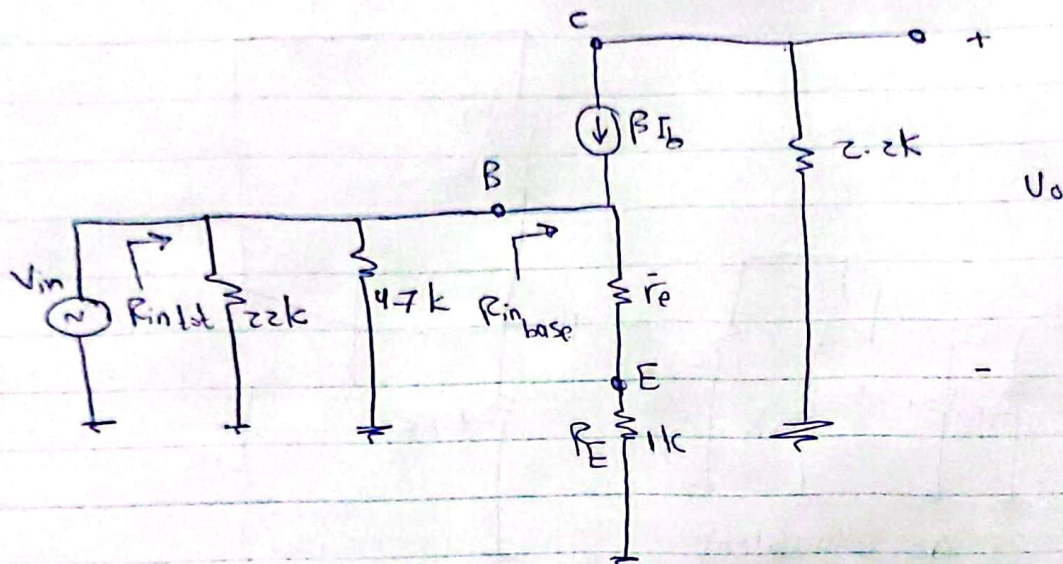 C
+
βI_b
2.2k
B
V_o
V_in
R_in tot
22k
4.7k
R_in base
r̄e
E
-
R_E
1k